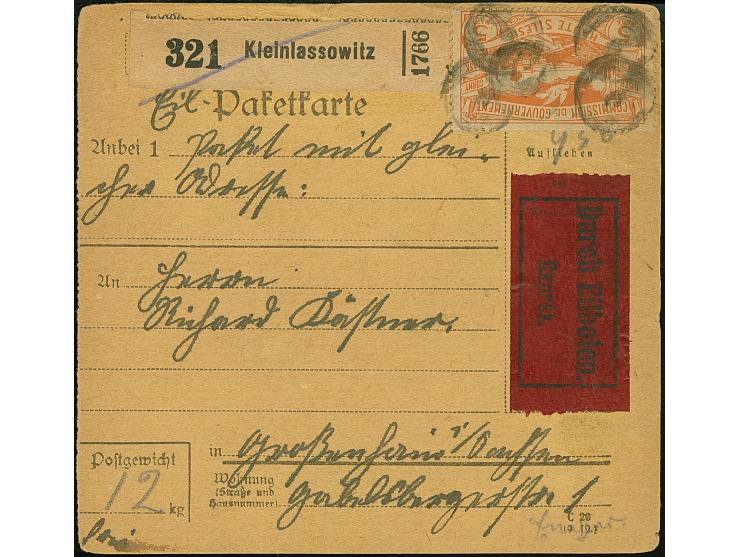 321 Kleinlassowitz 1766
Eil-Paketkarte
Anbei 1 Paket mit glei-
cher Adresse:
COMMISSION DE GOUVERNEMENT
HAUTE SILESIE
5
Aufkleben
Durch Eilboten.
Exprès.
An Herrn
Richard Kästner.
Postgewicht
12 kg
in Großenhain i/Sachsen
Wohnung
(Straße und
Hausnummer)
Gabelsbergerstr 1
C 20
frei